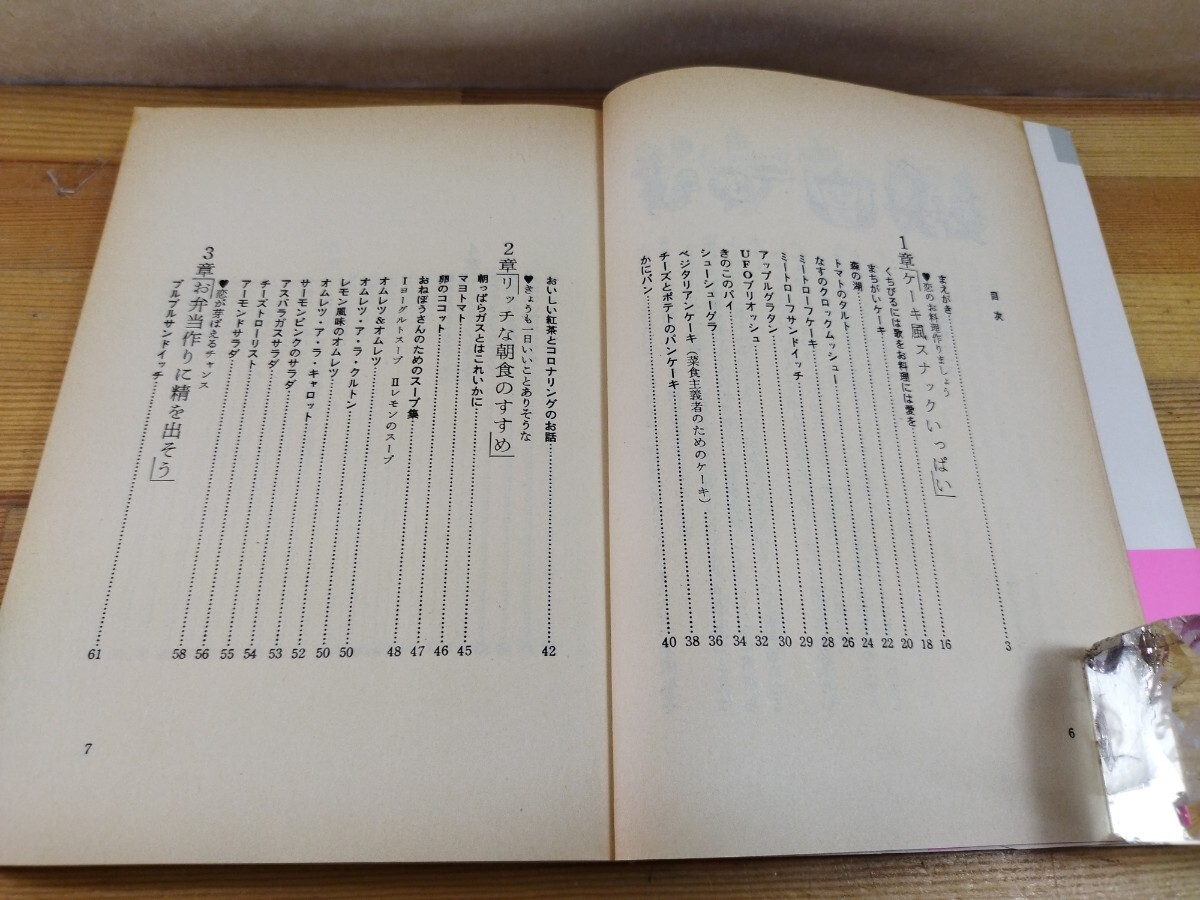 目次
まえがき 3
1章「ケーキ風スナックいっぱい」
♥恋のお料理作りましょう
くちびるには歌をお料理には愛を 16
まちがいケーキ 18
森の湖 20
トマトのタルト 22
なすのクロックムッシュー 24
ミートローフケーキ 26
ミートローフサンドイッチ 28
アップルグラタン 29
UFOブリオッシュ 30
きのこのパイ 32
シューシューグラ 34
ベジタリアンケーキ(菜食主義者のためのケーキ) 36
チーズとポテトのパンケーキ 38
かにパン 40
6
おいしい紅茶とコロナリングのお話 42
2章「リッチな朝食のすすめ」
♥きょうも一日いいことありそうな
朝っぱらガスとはこれいかに 45
マヨトマト 46
卵のココット 47
おねぼうさんのためのスープ集 48
Ⅰヨーグルトスープ Ⅱレモンのスープ
オムレツ&オムレツ 50
オムレツ・ア・ラ・クルトン 50
レモン風味のオムレツ 52
オムレツ・ア・ラ・キャロット 53
サーモンピンクのサラダ 54
アスパラガスサラダ 55
チーズトローリスト 56
アーモンドサラダ 58
3章「お弁当作りに精を出そう」
♥恋が芽ばえるチャンス
プルプルサンドイッチ 61
7